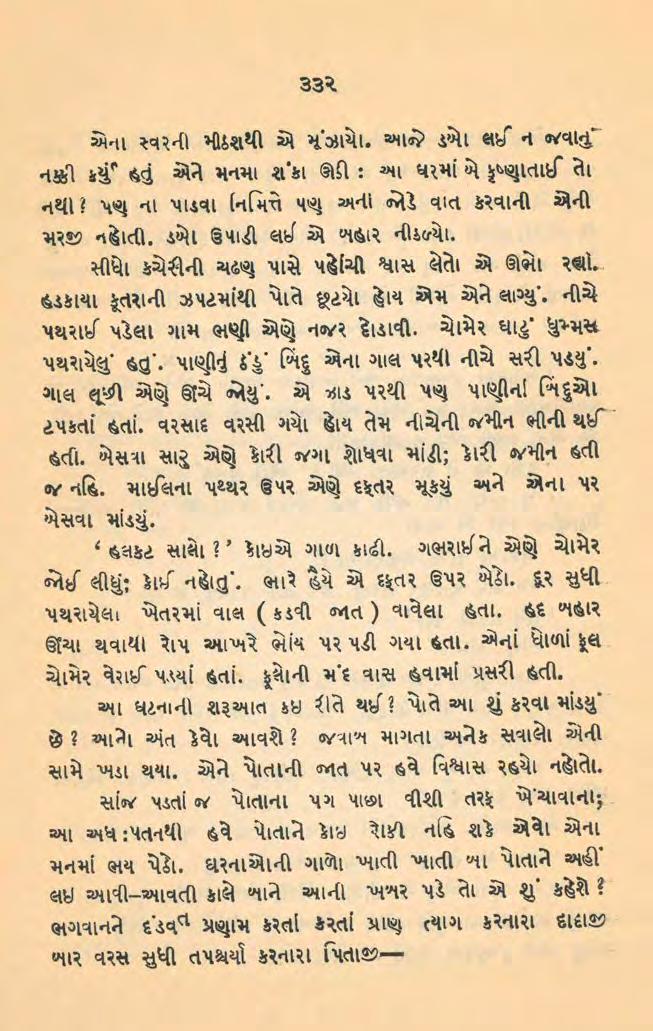 ૩૩૨
એના સ્વરની મીઠાશથી એ મૂંઝાયો. આજે ડબો લઈ ન જવાનું
નક્કી કર્યું હતું એને મનમા શંકા ઊઠી : આ ઘરમાં એ કૃષ્ણાતાઈ તો
નથી ? પણ ના પાડવા નિમિત્તે પણ અની જોડે વાત કરવાની એની
મરજી નહોતી. ડબો ઉપાડી લઈ એ બહાર નીકળ્યો.
સીધો કચેરીની ચઢણ પાસે પહોંચી શ્વાસ લેતો એ ઊભો રહ્યો.
હડકાયા કૂતરાની ઝપટમાંથી પોતે છૂટયો હોય એમ એને લાગ્યું. નીચે
પથરાઈ પડેલા ગામ ભણી એણે નજર દોડાવી. ચોમેર ઘાટું ધુમ્મસ
પથરાયેલું હતું. પાણીનું ઠંડું બિંદુ એના ગાલ પરથી નીચે સરી પડયું.
ગાલ લૂછી એણે ઊંચે જોયું. એ ઝાડ પરથી પણ પાણીનાં બિંદુઓ
ટપકતાં હતાં. વરસાદ વરસી ગયો હોય તેમ નીચેની જમીન ભીની થઈ
હતી. બેસવા સારુ એણે કોરી જગા શોધવા માંડી; કોરી જમીન હતી
જ નહિ. માઈલના પથ્થર ઉપર એણે દફતર મૂકયું અને એના પર
બેસવા માંડયું.
‘ હલકટ સાલો ? ’ કોઇએ ગાળ કાઢી. ગભરાઈને એણે ચોમેર
જોઈ લીધું; કોઈ નહોતું. ભારે હૈયે એ દફતર ઉપર બેઠો. દૂર સુધી
પથરાયેલા ખેતરમાં વાલ ( કડવી જાત ) વાવેલા હતા. હદ બહાર
ઊંચા થવાથી રોપ આખરે ભોંય પર પડી ગયા હતા. એનાં ધોળાં ફૂલ
ચોમેર વેરાઈ પડયાં હતાં. ફૂલોની મંદ વાસ હવામાં પ્રસરી હતી.
આ ઘટનાની શરૂઆત કઇ રીતે થઈ ? પોતે આ શું કરવા માંડયું
છે ? આનો અંત કેવો આવશે ? જવાબ માગતા અનેક સવાલો એની
સામે ખડા થયા. એને પોતાની જાત પર હવે વિશ્વાસ રહયો નહોતો.
સાંજ પડતાં જ પોતાના પગ પાછા વીશી તરફ ખેંચાવાના;
આ અધ:પતનથી હવે પોતાને કોઇ રોકી નહિ શકે એવો એના
મનમાં ભય પેઠો. ઘરનાઓની ગાળો ખાતી ખાતી બા પોતાને અહીં
લઇ આવી–આવતી કાલે બાને આની ખબર પડે તો એ શું કહેશે ?
ભગવાનને દંડવત પ્રણામ કરતાં કરતાં પ્રાણ ત્યાગ કરનારા દાદાજી
બાર વરસ સુધી તપશ્ચર્યા કરનારા પિતાજી—